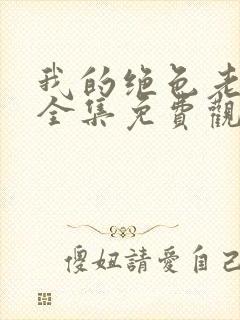 我的绝色老
全集免費觀
傻妞請愛自己